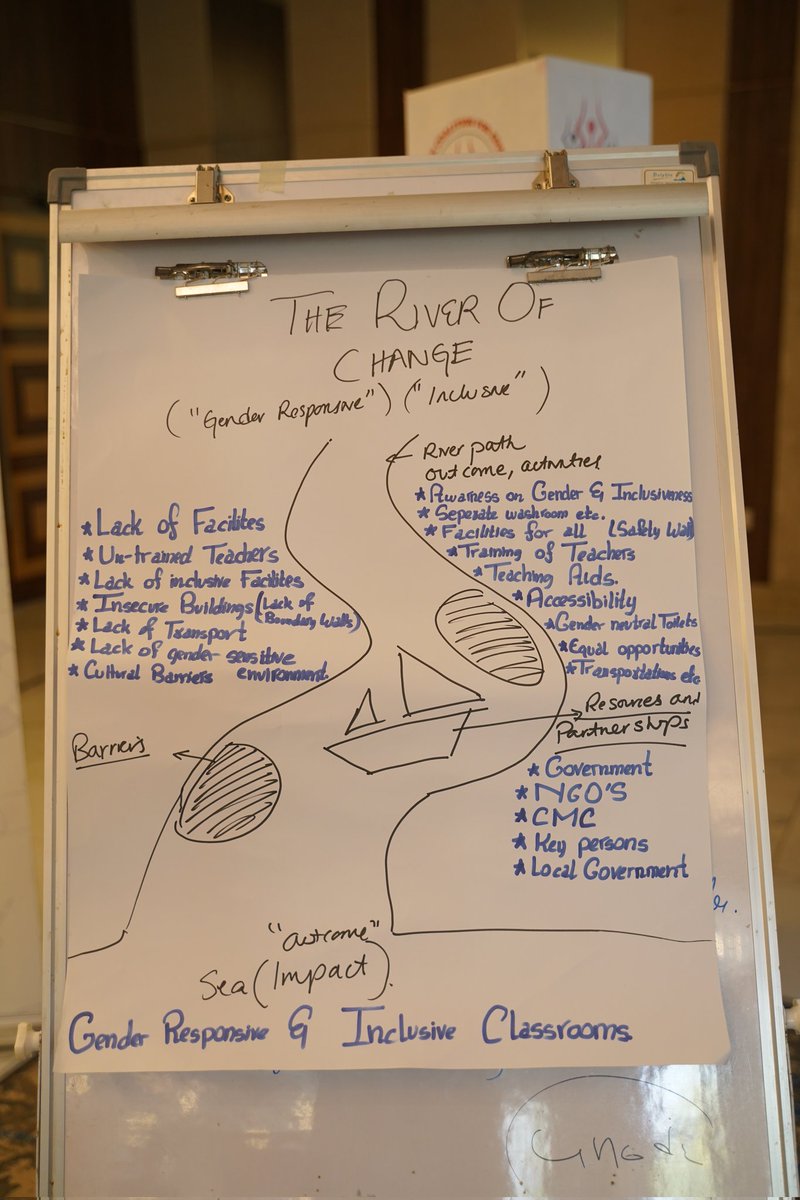 THE RIVER OF
CHANGE
("Gender Responsive") ("Inclusive")
River path
outcome, activities
* Awarness on Gender & Inclusiveness
* Seperate washroom etc.
* Facilities for all (Safety Wall)
* Training of Teachers
* Teaching Aids.
* Accessibility
* Gender neutral Toilets
* Equal opportunities
* Transportations etc
* Lack of Facilites
* Un-trained Teachers
* Lack of inclusive Facilites
* Insecure Buildings (Lack of
Boundary Walls)
* Lack of Transport
* Lack of gender sensitive
* Cultural Barriers environment.
Barriers
Resources and
Partnerships
* Government
* NGO'S
* CMC
* Key persons
* Local Government
"outcome"
Sea (Impact).
Gender Responsive & Inclusive Classrooms.